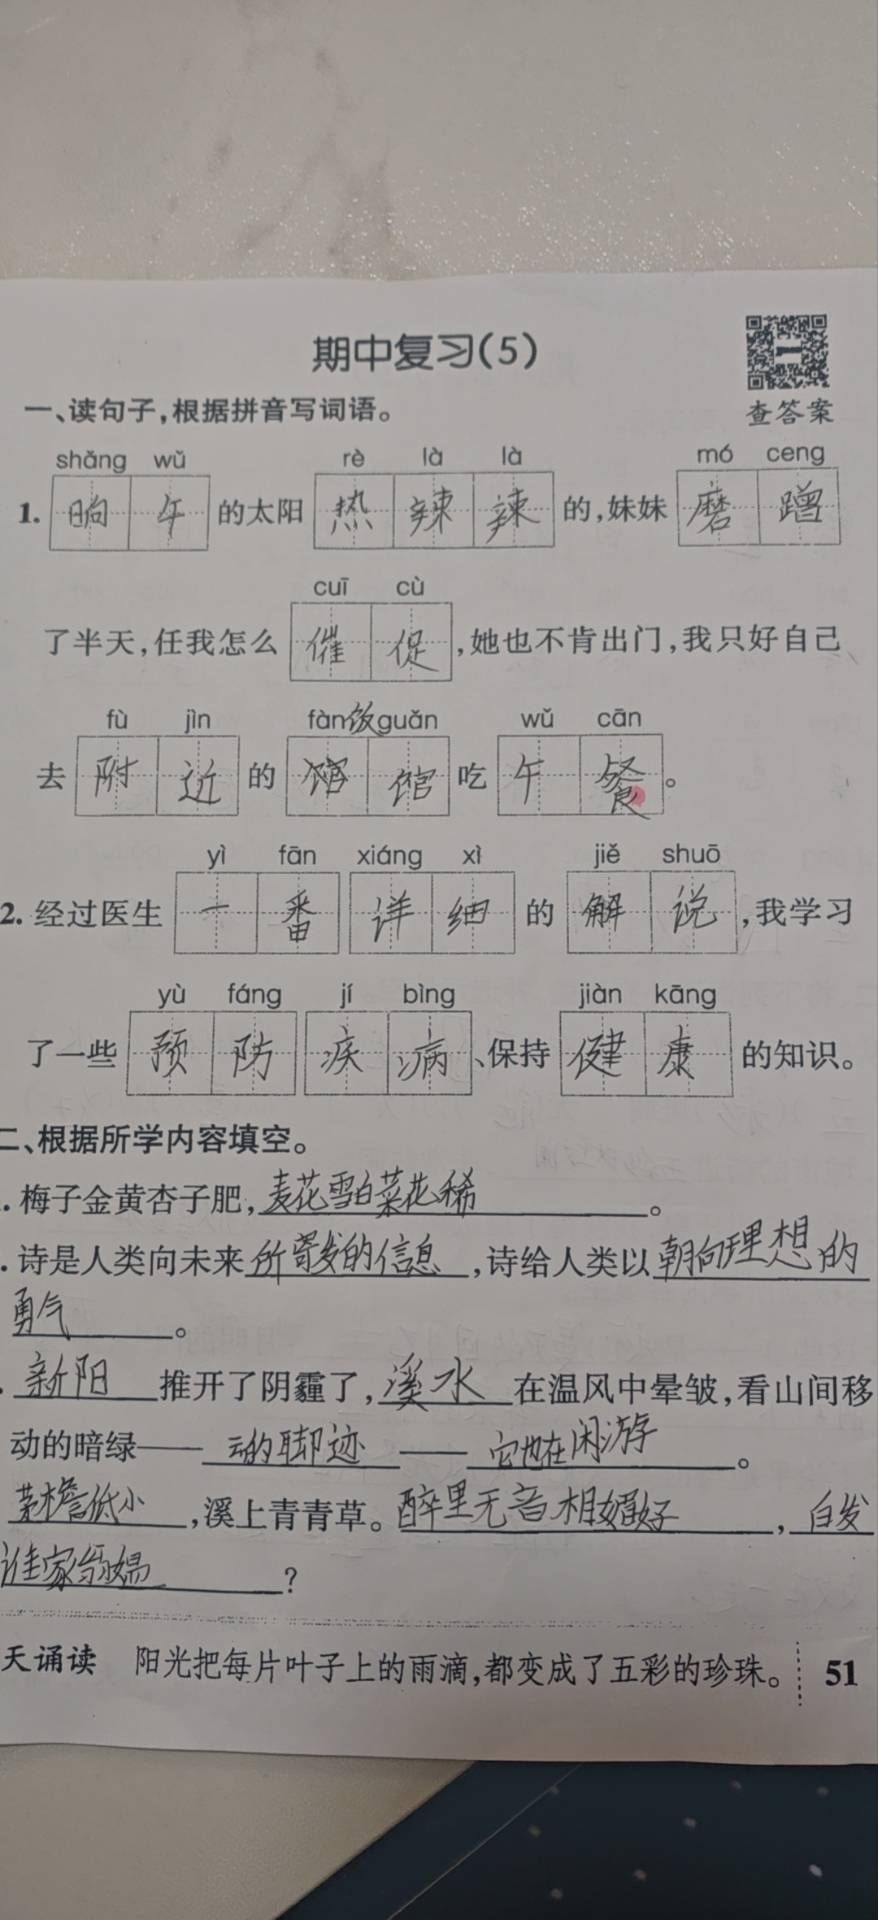 期中复习(5)
查答案
一、读句子,根据拼音写词语。
shǎng wǔ rè là là mó ceng
1. 晌午的太阳热辣辣的,妹妹磨蹭
cuī cù
了半天,任我怎么催促,她也不肯出门,我只好自己
fù jìn fàn饭guǎn wǔ cān
去附近的馆馆吃午餐。
yì fān xiáng xì jiě shuō
2. 经过医生一番详细的解说,我学习
yù fáng jí bìng jiàn kāng
了一些预防疾病、保持健康的知识。
二、根据所学内容填空。
. 梅子金黄杏子肥,麦花雪白菜花稀。
. 诗是人类向未来所寄发的信息,诗给人类以朝向理想的
勇气。
. 新阳推开了阴霾了,溪水在温风中晕皱,看山间移
动的暗绿——动的脚迹——它也在闲游。
茅檐低小,溪上青青草。醉里无音相媚好,白发
谁家翁媪?
天诵读 阳光把每片叶子上的雨滴,都变成了五彩的珍珠。 51